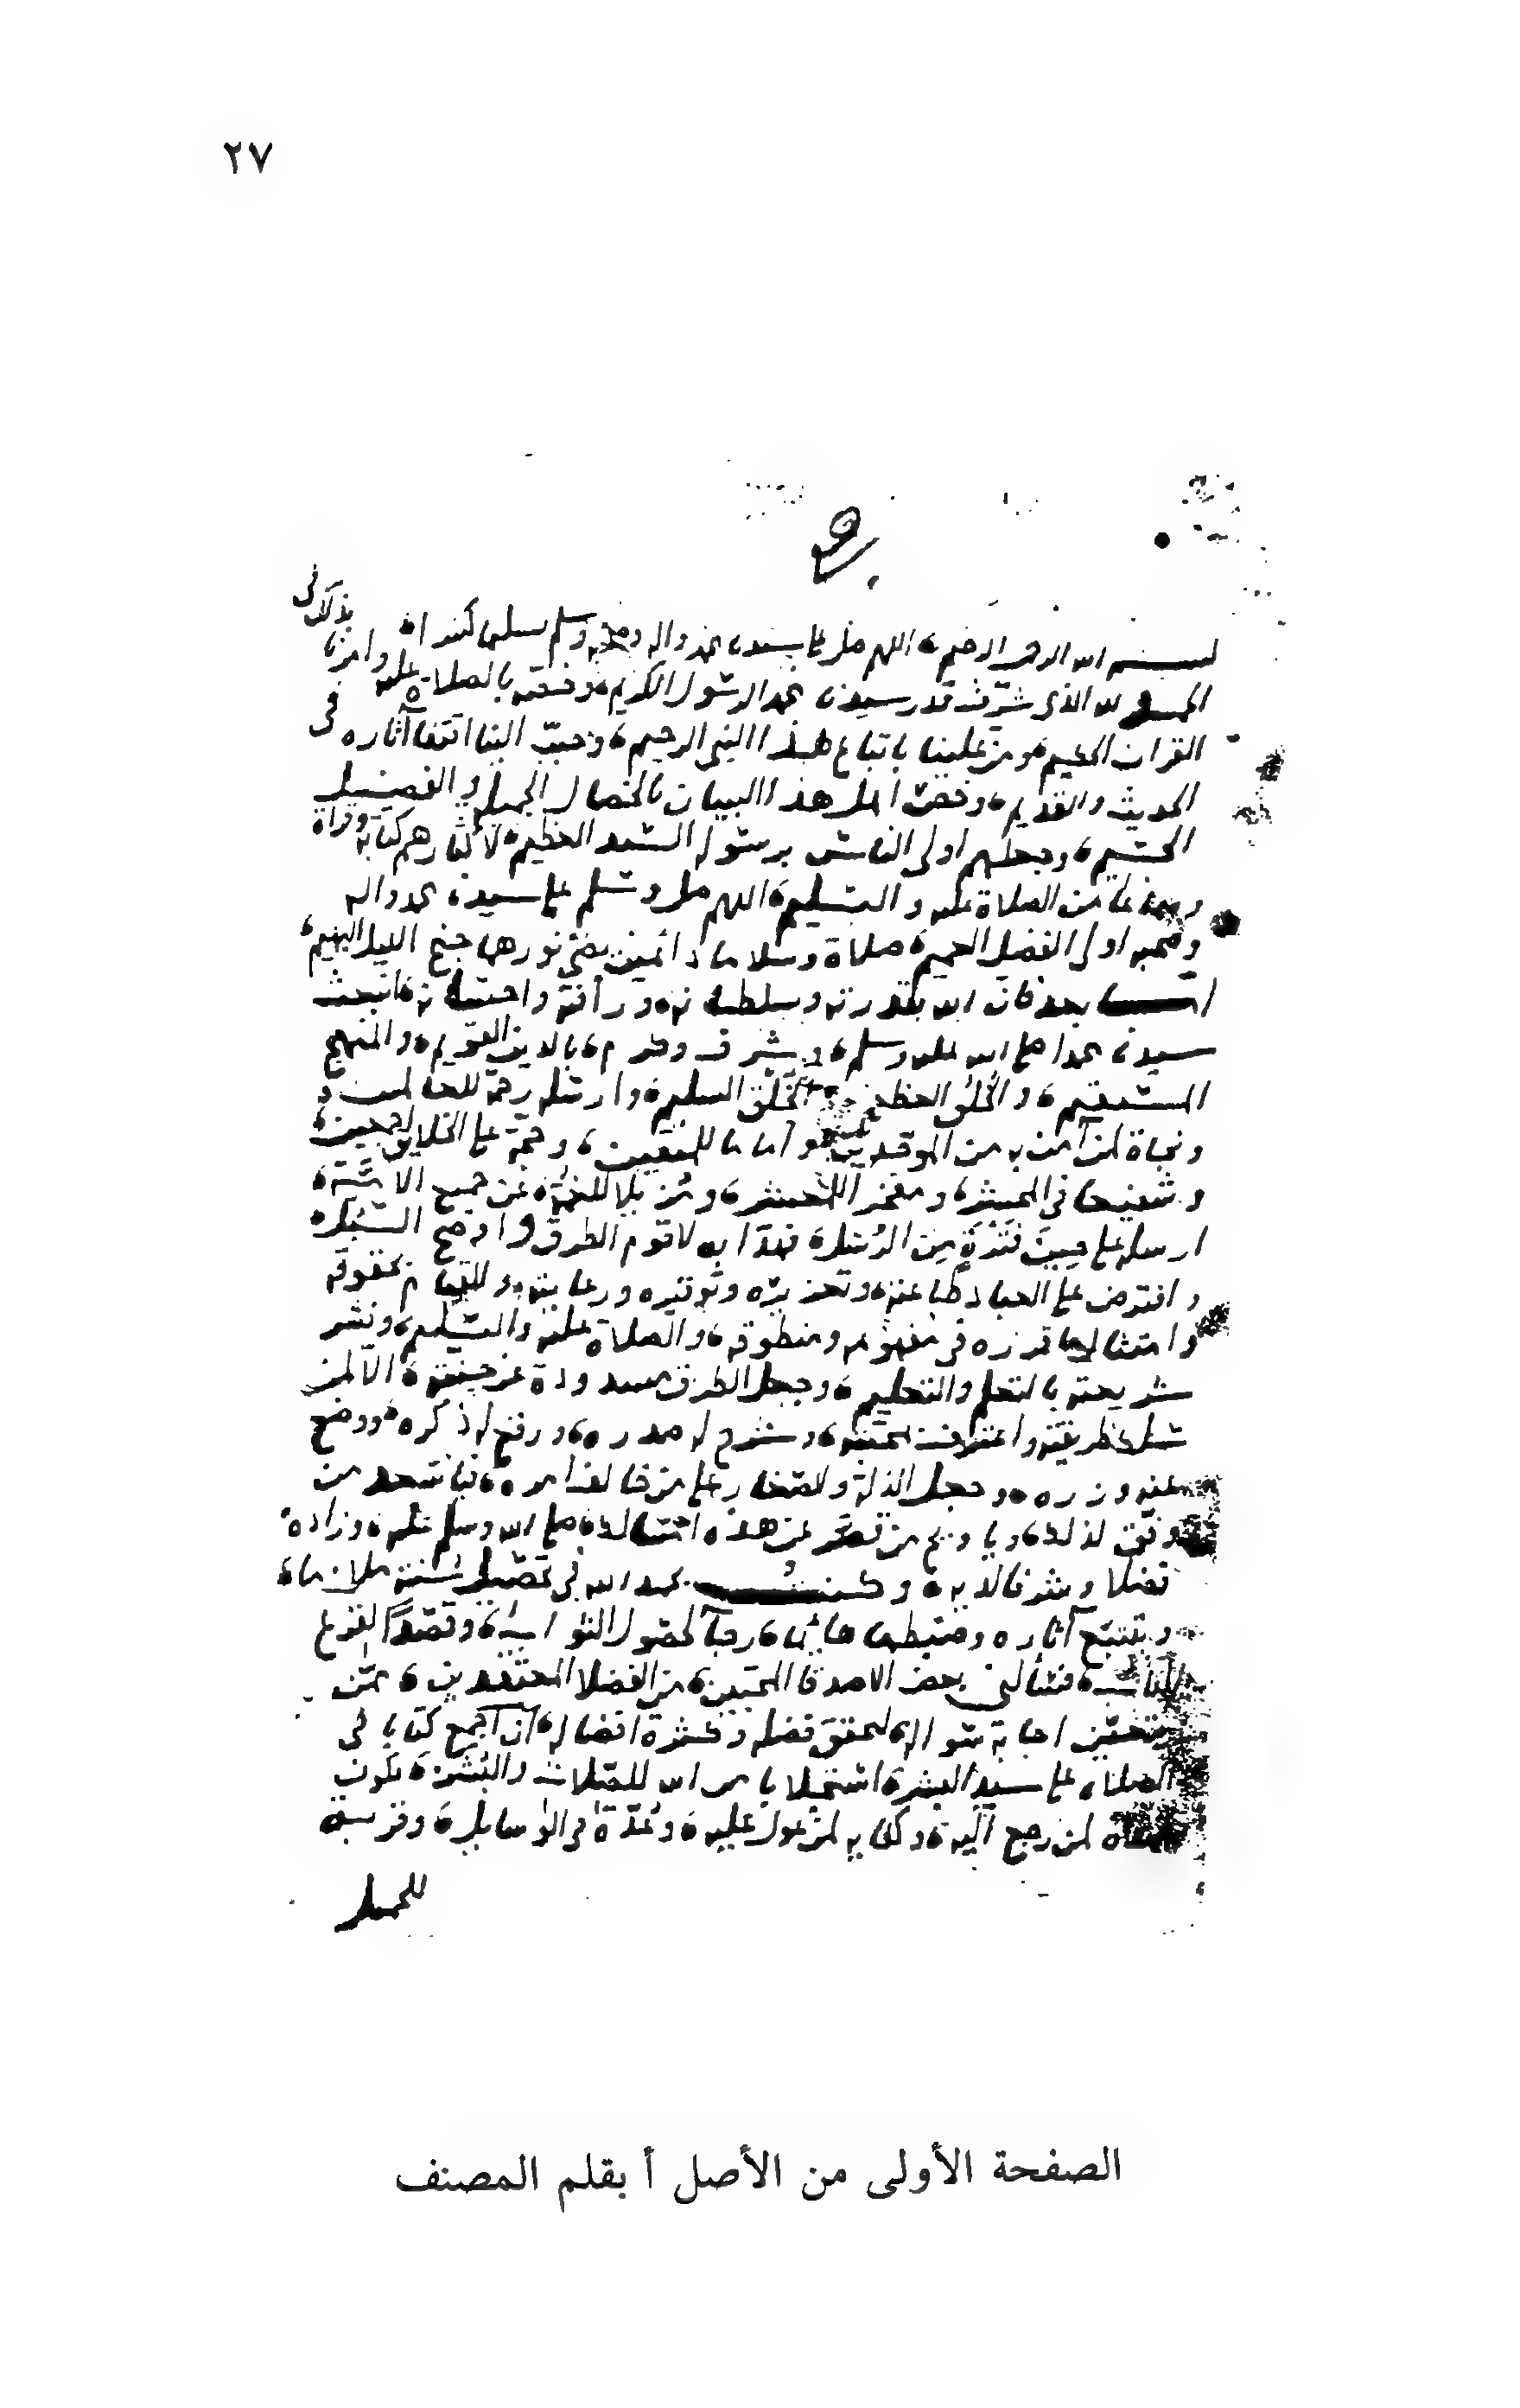 ٢٧
بسم الله الرحمن الرحيم اللهم صل على سيدنا محمد واله وصحبه وسلم تسليما كثيرا
الحمد لله الذي شرّف قدر سيدنا محمد الرسول الكريم وخصّه بالصلاة عليه وامرنا بذلك في
القران الحكيم ومن علينا باتباع هذا النبي الرحيم وحبّب الينا اقتفا آثاره في
الحديث والقديم وخصّ اهل هذا البيان بالخصال الجميلة والفضل
الجسيم وجعلهم اولى الناس برسوله السيد العظيم لاكثارهم كتابة وقراة
من الصلاة عليه والتسليم اللهم صل وسلم على سيدنا محمد واله
وصحبه اولى الفضل العميم صلاة وسلاما دائمين يضي نورهما جنح الليل البهيم
امّا بعد فان الله بقدرته وسلطانه ورأفته واحسانه بعث
سيدنا محمدا صلى الله عليه وسلم وشرف وكرم بالدين القويم والمنهج
المستقيم والخُلُق العظيم والخَلْق السليم وارسله رحمة للعالمين
ونجاة لمن آمن به من الموحدين واماما للمتقين وحجة على الخلايق اجمعين
وشفيعا في المحشر ومفخرا للمعشر ومزيلا للغمّة عن جميع الامّة
ارسله على حين فترة من الرسل فهدا به لاقوم الطرق واوضح السبل
وافترض على العباد طاعته وتعزيره وتوقيره ورعايته والقيام بحقوقه
وامتثال ما قرره في مفهومه ومنطوقه والصلاة عليه والتسليم ونشر
شريعته بالتعلم والتعليم وجعل الطرق مسدودة عن جنته الا لمن
سلك طريقه واعترف بمحبته وشرح له صدره ورفع له ذكره ووضع
عنه وزره وجعل الذلة والصغار على من خالف امره فيا سعد من
وفق لذلك ويا ويح من قصّر عن هذه المسالك صلى الله وسلم عليه وزاده
فضلا وشرفا لديه وكنت بحمد الله في تحصيل سنته ملازما
وبتتبع آثاره وضبطها هائما رجآ لحصول الثواب وقصدًا
فسألني بعض الاصدقا المحبين من الفضلا المعتقدين ممن
تتعين اجابة سواله لتحقق فضله وكثرة افضاله ان اجمع كتابا في
الصلاة على سيد البشر استجلابا من الله للصلات والبشر يكون
لمن رجع اليه وكفاية لمن عول عليه وعُدّة في الوسايل وقربة
للجميل
الصفحة الأولى من الأصل أ بقلم المصنف